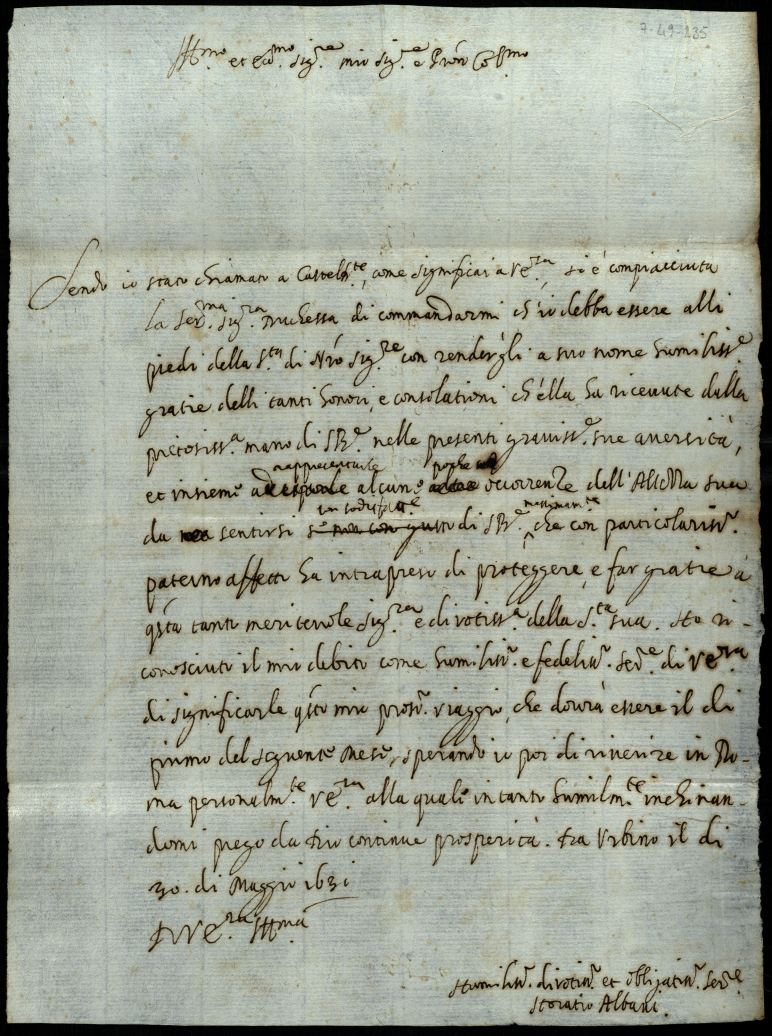 7-49-135
Ill.mo et Ecc.mo Sig.re mio Sig.re e Pron Col.mo
Sendo io stato chiamato a Castel, come significai a V.E.za, si è compiacciuta
la Ser.ma Sig.ra Duchessa di commandarmi ch'io debba essere alli
piedi della S.tà di Nrō Sig.re con rendergli a suo nome humiliss.e
gratie delli tanti honori, e consolationi ch'ella ha ricevute dalla
pietosiss.a mano di S.B.e nelle presenti graviss.e sue aversità,
rappresentarle poche
et insieme alcune occorrenze dell'Altezza sua
in sodisfatt.e massimam.te
da sentirsi se non con gusto di S.B.e che con particolariss.o
paterno affetto ha intrapreso di proteggere, e far gratie à
qsta tanto meritevole Sig.ra e divotiss.a della S.tà sua. Ho ri-
conosciuto il mio debito come humiliss.o e fedeliss.o Ser.e di V.E.za
di significarle qsto mio pross.o viaggio, che dovrà essere il di
primo del seguente Mese, sperando io poi di riverire in Ro-
ma personalm.te V.E.za alla quale intanto humilm.te inchinan-
domi prego da Dio continue prosperità. Da Urbino il di
30. di Maggio 1631
D V.E.za Ill.ma
Humiliss.o divotiss.o et obligatiss.o Ser.e
Horatio Albani.